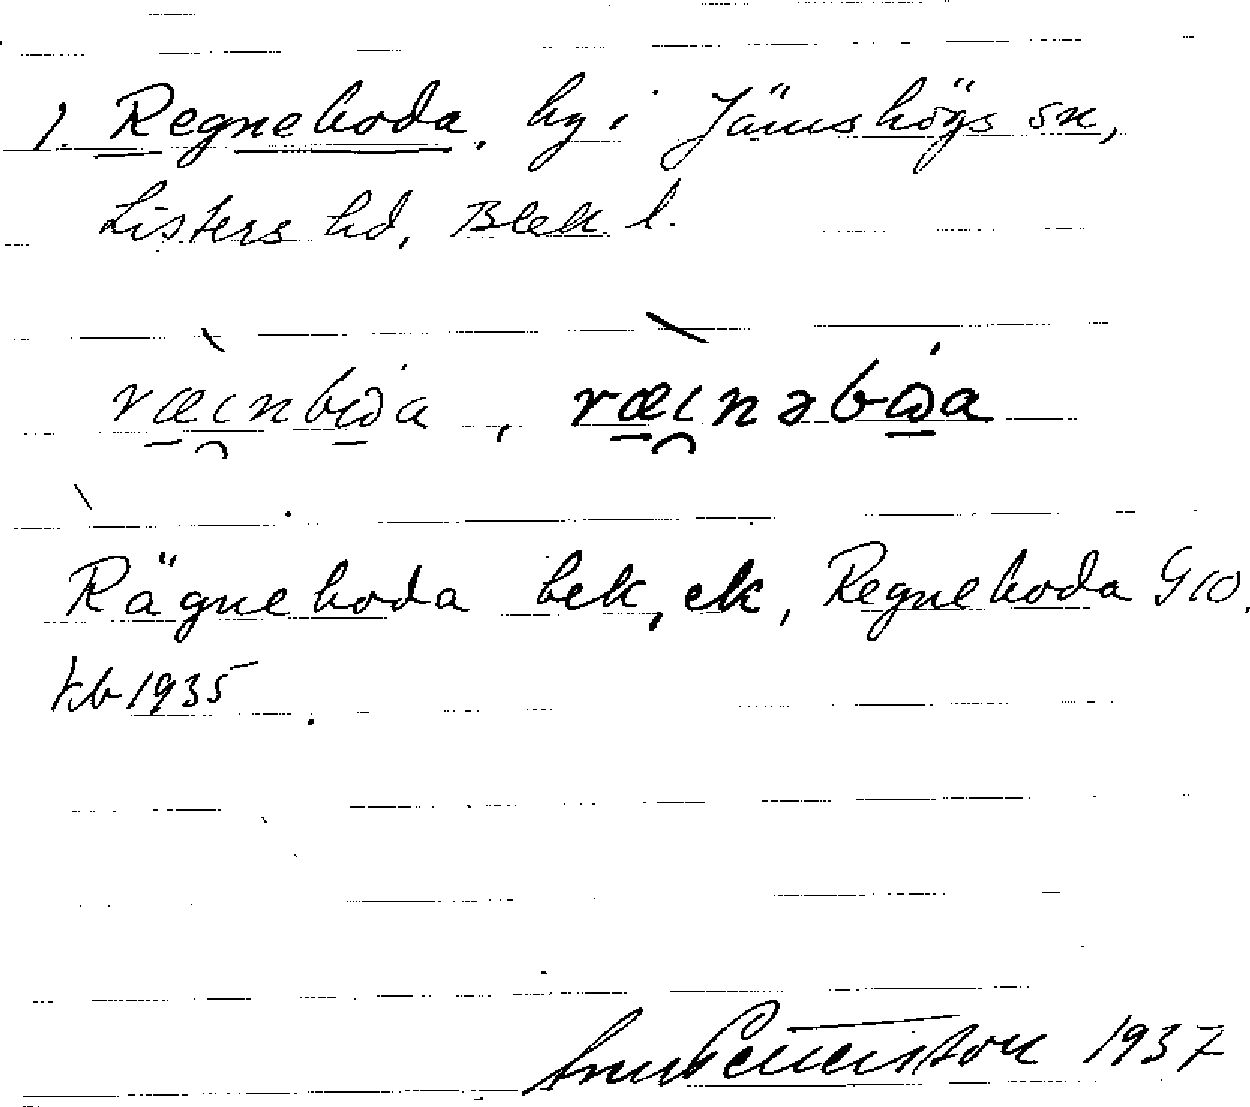 1. Regneboda, by i Jämshögs sn,
Listers hd, Blek l.
ræɩnbɷa, ræɩnəbɷa
Rägneboda bek, ek, Regneboda GEO,
kb 1935.
1937